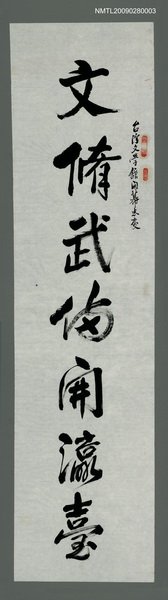 NMTL20090280003
台灣文學館開幕志慶
文脩武備開瀛臺